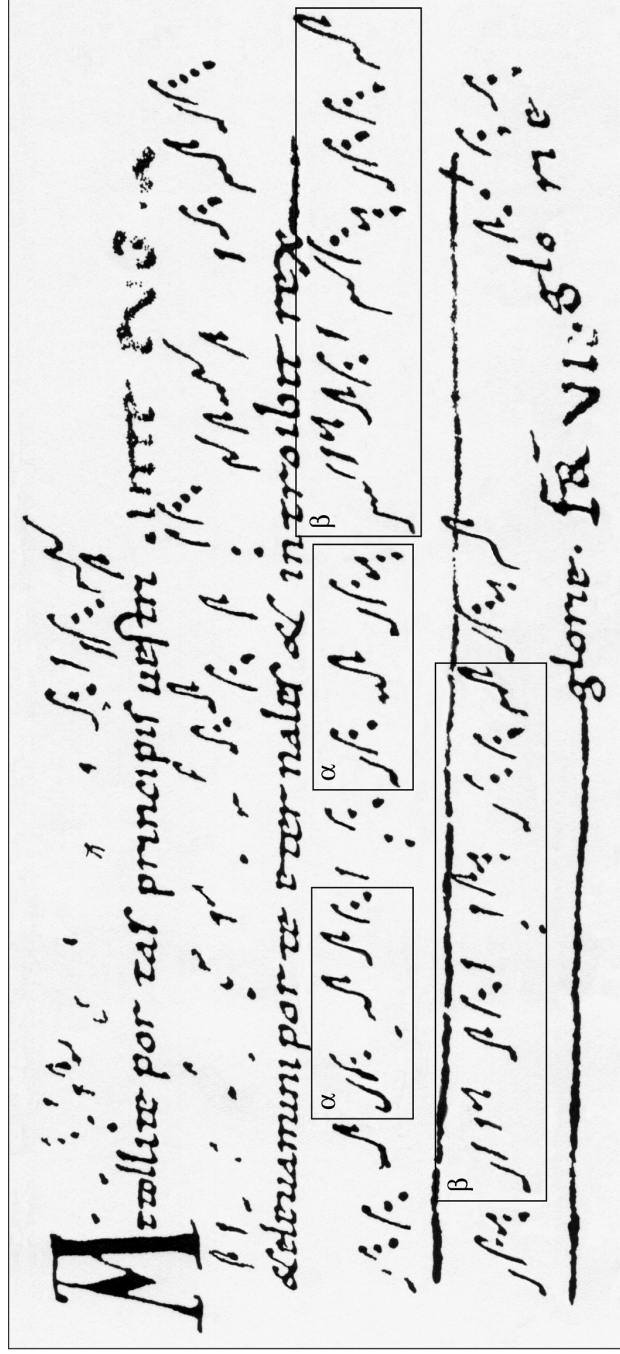 M
tollite por tas principis uestri
& eleuamini por te eter nales & introibit rex
α α β
β
glorie.